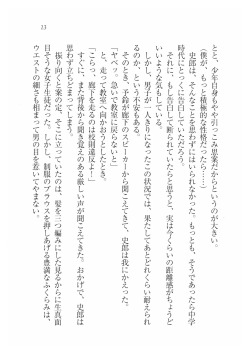 13
とと、少年自身もやや引っこみ思案だからというのが大きい。
（僕が、もっと積極的な性格だったら……）
史郎は、そんなことを思わずにはいられなかった。もっとも、そうであったら中学
時代にとっくに告白していただろう。
そして、告白して断られていたらと思うと、実は今くらいの距離感がちょうど
いいような気もしている。
しかし、男子が一人きりになったこの状況では、果たしてあとどれくらい耐えられ
るのか、という不安もある。
そのとき、予鈴が廊下のスピーカーから聞こえてきて、史郎は我にかえった。
「ヤベッ。急いで教室に戻らないと」
と、走って教室へ向かおうとしたとき。
「こらっ、廊下を走るのは校則違反よ！」
すぐに、また背後から聞き覚えのある厳しい声が聞こえてきた。おかげで、史郎は
思わず立ちどまってしまう。
振り向くと案の定、そこに立っていたのは、髪を三つ編みにした見るからに生真面
目そうな女子生徒だった。しかし、制服のブラウスを押しあげる豊満なふくらみは、
ウエストの細さも相まって男の目を惹いてやまない。